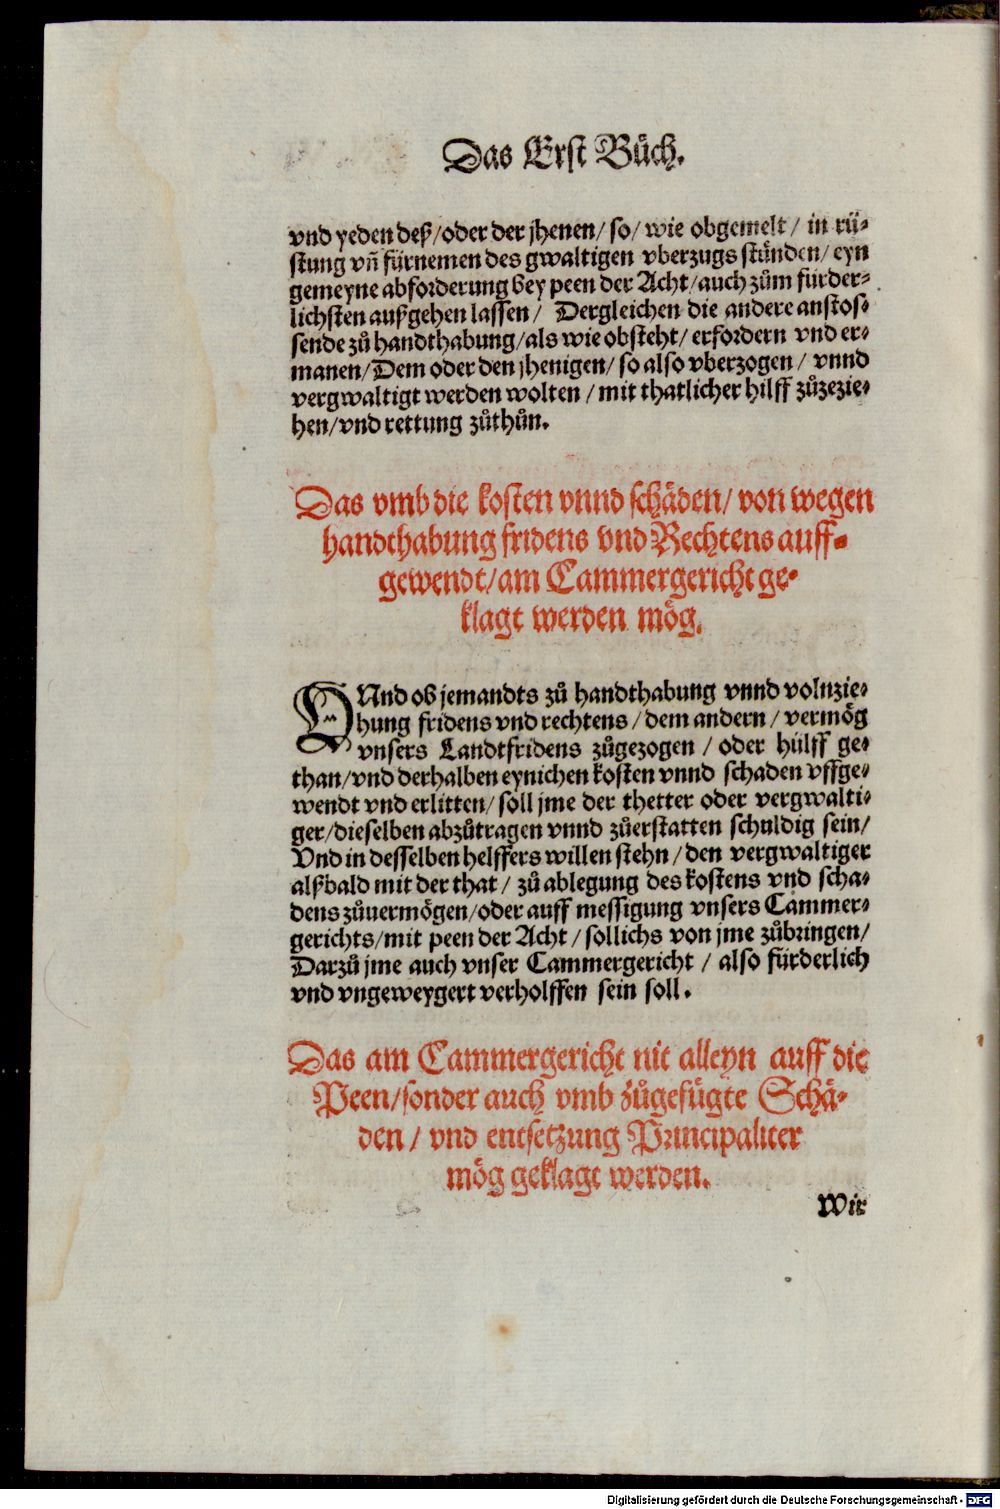 Das Erst Bůch.
vnd yeden deß/oder der jhenen/so/wie obgemelt/in rü⸗
stung vñ fürnemen des gwaltigen vberzugs stünden/eyn
gemeyne abforderung bey peen der Acht/auch zům fürder⸗
lichsten außgehen lassen/ Dergleichen die andere anstos⸗
sende zů handthabung/als wie obsteht/erfordern vnd er⸗
manen/Dem oder den jhenigen/so also vberzogen/vnnd
vergwaltigt werden wolten/mit thatlicher hilff zůzezie⸗
hen/vnd rettung zůthůn.
Das vmb die kosten vnnd schäden/von wegen
handthabung fridens vnd Rechtens auff⸗
gewendt/am Cammergericht ge⸗
klagt werden mög.
VNnd ob jemandts zů handthabung vnnd volnzie⸗
hung fridens vnd rechtens/dem andern/vermög
vnsers Landtfridens zůgezogen/oder hülff ge⸗
than/vnd derhalben eynichen kosten vnnd schaden vffge⸗
wendt vnd erlitten/soll jme der thetter oder vergwalti⸗
ger/dieselben abzůtragen vnnd zůerstatten schuldig sein/
Vnd in desselben helffers willen stehn/den vergwaltiger
alßbald mit der that/zů ablegung des kostens vnd scha⸗
dens zůuermögen/oder auff messigung vnsers Cammer⸗
gerichts/mit peen der Acht/sollichs von jme zůbringen/
Darzů jme auch vnser Cammergericht/also fürderlich
vnd vngeweygert verholffen sein soll.
Das am Cammergericht nit alleyn auff die
Peen/sonder auch vmb zůgefügte Schä⸗
den/vnd entsetzung Principaliter
mög geklagt werden.
Wir
Digitalisierung gefördert durch die Deutsche Forschungsgemeinschaft - DFG